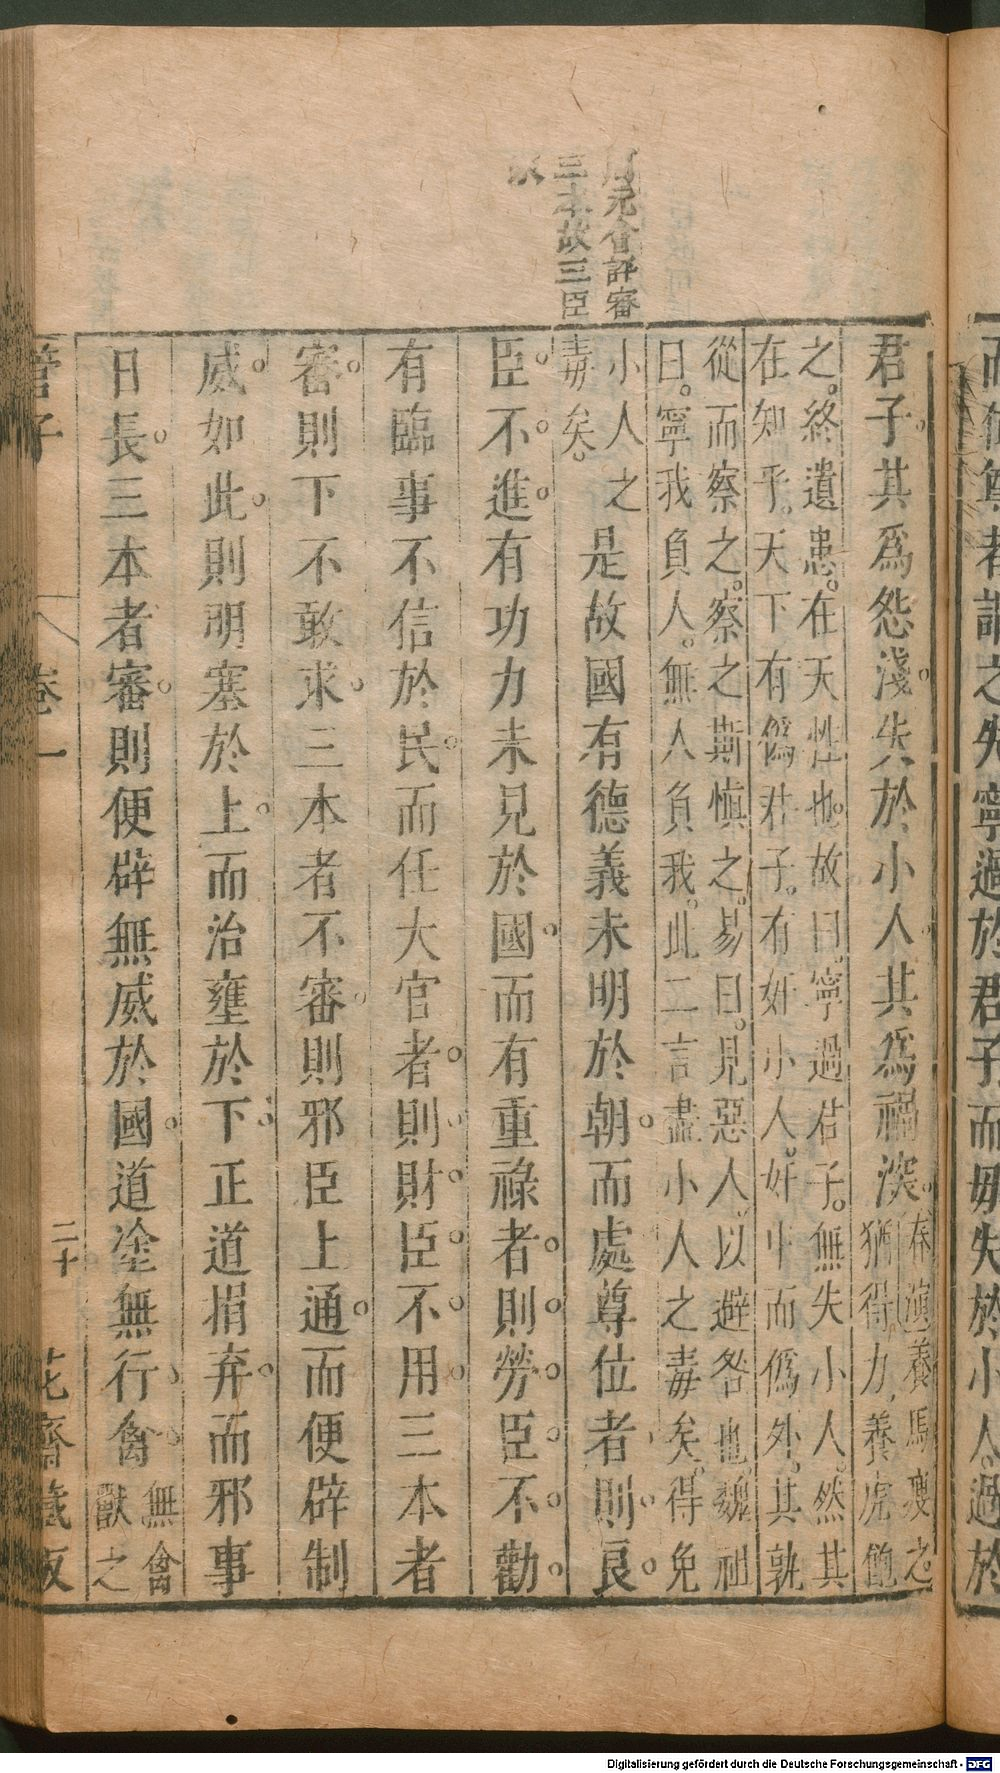 而修無者謂之失寧過於君子而毋失於小人過於
元會評審
三本故三臣
君子其為怨淺失於小人其為禍深 秦演養馬瘦之 猶得力養虎飽
之終遺患在天性也故曰寧過君子無失小人然其
在知乎天下有偽君子有奸小人奸中而偽外其孰
從而察之察之斯慎之易曰見惡人以避咎也魏祖
曰寧我負人無人負我此二言盡小人之毒矣得免
小人之毒矣 是故國有德義未明於朝而處尊位者則良
臣不進有功力未見於國而有重祿者則勞臣不勸
有臨事不信於民而任大官者則財臣不用三本者
審則下不敢求三本者不審則邪臣上通而便辟制
威如此則明塞於上而治壅於下正道捐弃而邪事
日長三本者審則便辟無威於國道塗無行禽 無禽獸之
管子
卷一
二十
花齋藏板
Digitalisierung gefördert durch die Deutsche Forschungsgemeinschaft - DFG